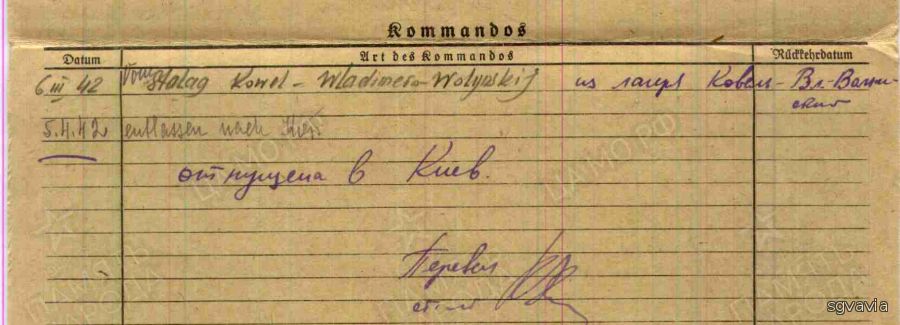 Kommandos
Datum Art des Kommandos Rückkehrdatum
6 III 42 vom Stalag Kowel - Wladimero-Wolynskij из лагеря Ковель - Вл-Волын-
ский
5.4.42 entlassen nach Kiew
отпущена в Киев.
Перевел
ЦАМО РФ
ПАМЯТЬ
sgvavia